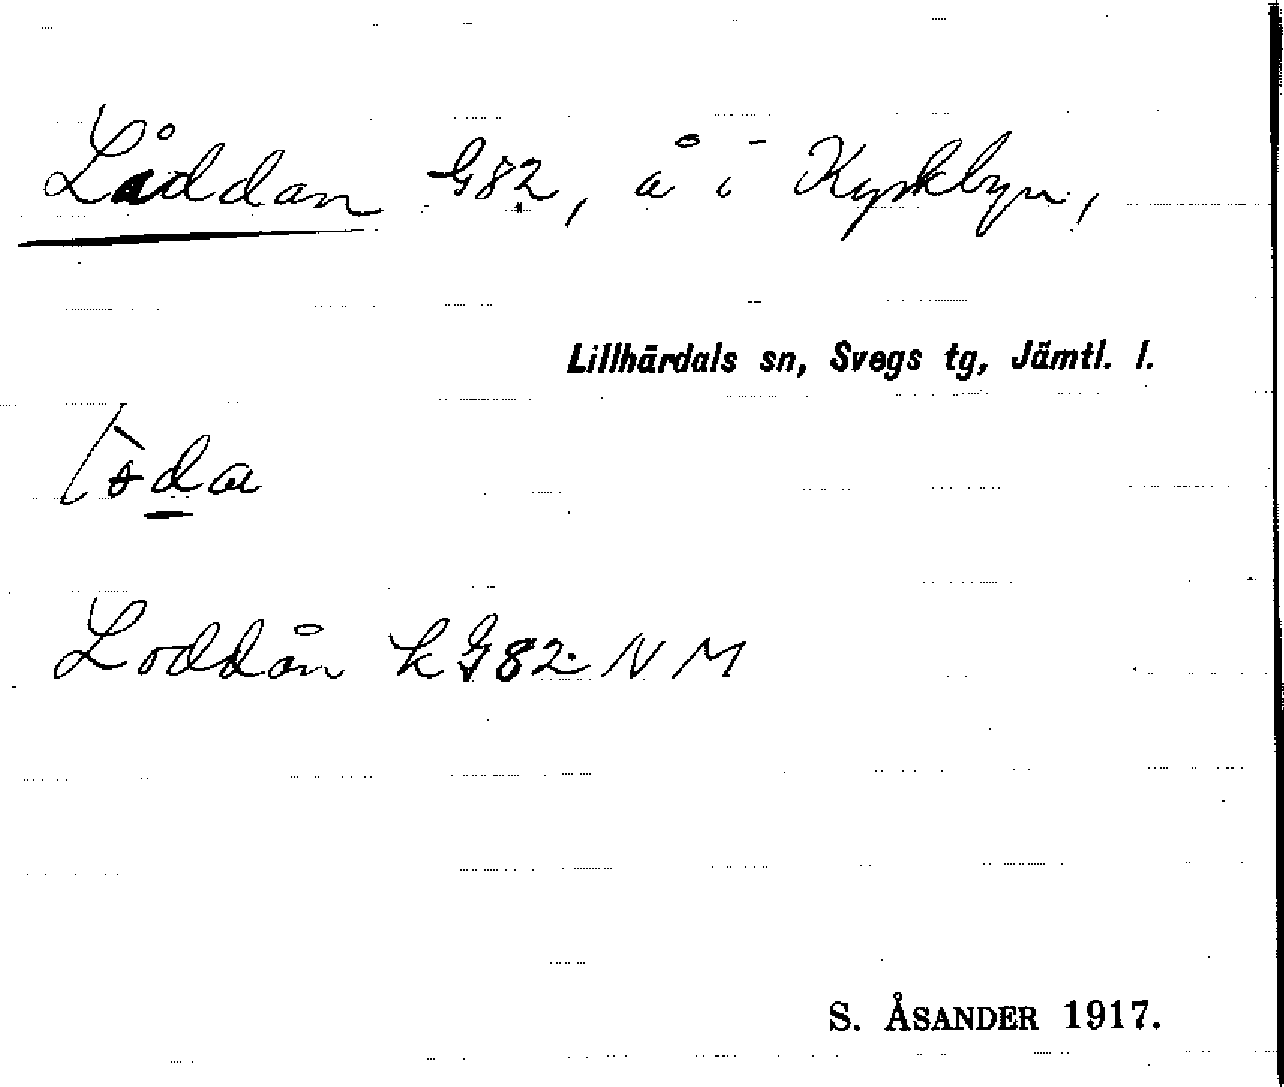 Låddan G82, å i Kyrkbyn,
Lillhärdals sn, Svegs tg, Jämtl. l.
Loddån kG82 NM
S. ÅSANDER 1917.